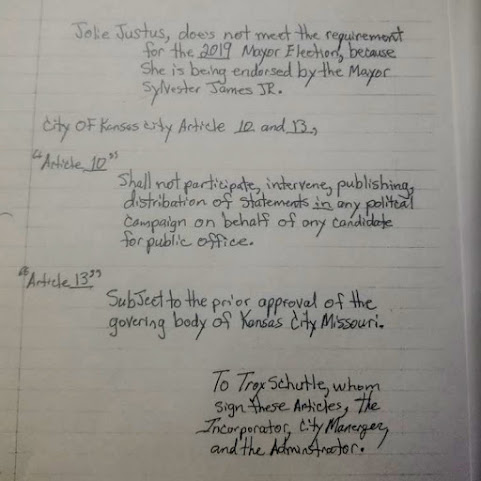 Jolie Justus, does not meet the requirement
for the 2019 Mayor Election, because
She is being endorsed by the Mayor
Sylvester James JR.
City OF Kansas City Article 10 and 13,
"Article 10"
Shall not participate, intervene, publishing,
distribution of statements in any politcal
Campaign on behalf of any candidate
for public office.
"Article 13"
Subject to the prior approval of the
govering body of Kansas City Missouri.
To Troy Schutle, whom
sign these Articles, the
Incorporator, City Manerger,
and the Adminstrator.